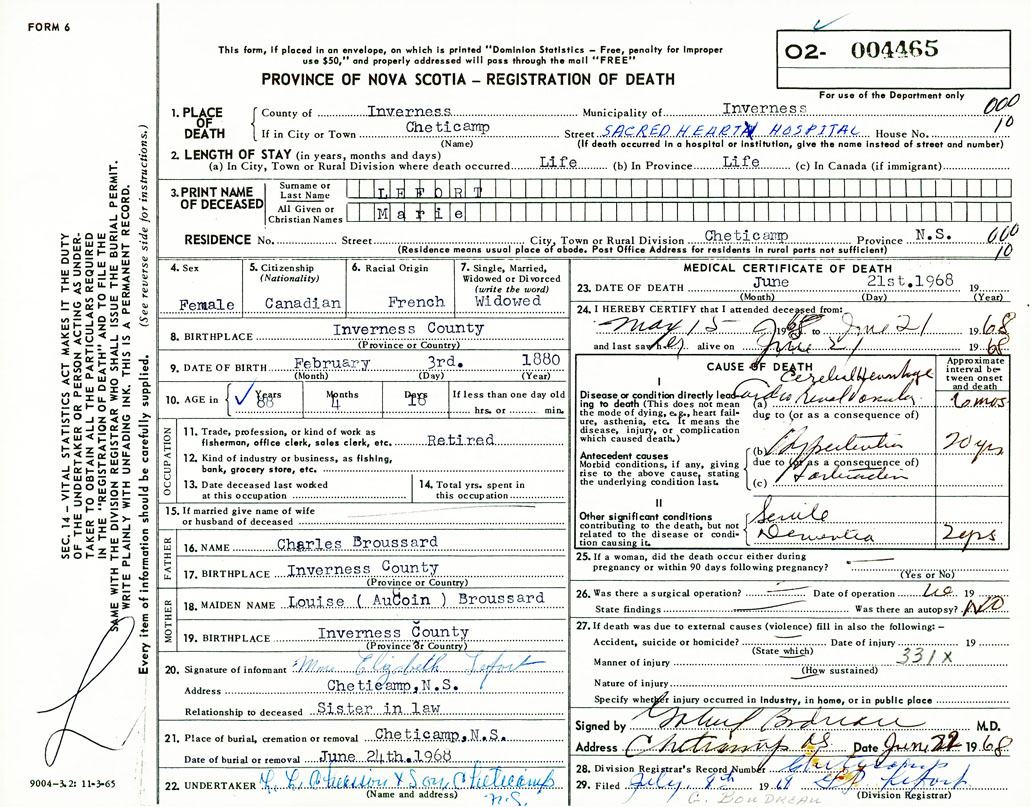 FORM 6
This form, if placed in an envelope, on which is printed "Dominion Statistics – Free, penalty for improper
use $50," and properly addressed will pass through the mail "FREE"
PROVINCE OF NOVA SCOTIA – REGISTRATION OF DEATH
02- 004465
For use of the Department only
1. PLACE OF DEATH
County of Inverness Municipality of Inverness
000
10
If in City or Town Cheticamp Street SACRED HEART HOSPITAL House No.
(Name) (If death occurred in a hospital or institution, give the name instead of street and number)
2. LENGTH OF STAY (in years, months and days)
(a) In City, Town or Rural Division where death occurred Life (b) In Province Life (c) In Canada (if immigrant)
3. PRINT NAME OF DECEASED
Surname or Last Name LEFORT
All Given or Christian Names Marie
RESIDENCE No. Street City, Town or Rural Division Cheticamp Province N.S.
000
10
(Residence means usual place of abode. Post Office Address for residents in rural parts not sufficient)
4. Sex
Female
5. Citizenship
(Nationality)
Canadian
6. Racial Origin
French
7. Single, Married,
Widowed or Divorced
(write the word)
Widowed
8. BIRTHPLACE Inverness County
(Province or Country)
9. DATE OF BIRTH February 3rd. 1880
(Month) (Day) (Year)
10. AGE in
Years
88
Months
4
Days
18
If less than one day old
hrs. or min.
OCCUPATION
11. Trade, profession, or kind of work as
fisherman, office clerk, sales clerk, etc. Retired
12. Kind of industry or business, as fishing,
bank, grocery store, etc.
13. Date deceased last worked
at this occupation
14. Total yrs. spent in
this occupation
15. If married give name of wife
or husband of deceased
FATHER
16. NAME Charles Broussard
17. BIRTHPLACE Inverness County
(Province or Country)
MOTHER
18. MAIDEN NAME Louise ( AuCoin ) Broussard
19. BIRTHPLACE Inverness County
(Province or Country)
20. Signature of informant Mrs Elizabeth Lefort
Address Cheticamp,N.S.
Relationship to deceased Sister in law
21. Place of burial, cremation or removal Cheticamp,N.S.
Date of burial or removal June 24th.1968
22. UNDERTAKER & Son, Cheticamp
(Name and address)
N.S.
MEDICAL CERTIFICATE OF DEATH
23. DATE OF DEATH June 21st.1968 19
(Month) (Day) (Year)
24. I HEREBY CERTIFY that I attended deceased from:
May 15 1968 to June 21 1968
and last saw her alive on June 21 1968
CAUSE OF DEATH
Approximate interval between onset and death
I
Cerebral Hemorrhage
Disease or condition directly leading to death (This does not mean the mode of dying, e.g., heart failure, asthenia, etc. It means the disease, injury, or complication which caused death.)
(a) Cardio Renal Vascular
due to (or as a consequence of)
Antecedent causes
Morbid conditions, if any, giving rise to the above cause, stating the underlying condition last.
(b) Hypertension 20 yrs
due to (or as a consequence of)
(c)
II
Other significant conditions
contributing to the death, but not related to the disease or condition causing it.
Senile
Dementia 2 yrs
25. If a woman, did the death occur either during
pregnancy or within 90 days following pregnancy?
(Yes or No)
26. Was there a surgical operation? Date of operation 19
State findings Was there an autopsy? NO
27. If death was due to external causes (violence) fill in also the following:–
Accident, suicide or homicide? Date of injury 19
(State which)
Manner of injury 331X
(How sustained)
Nature of injury
Specify whether injury occurred in industry, in home, or in public place
Signed by M.D.
Address Cheticamp NS Date June 22 1968
28. Division Registrar's Record Number
29. Filed July 9th 1968 Lefort
(Division Registrar)
G. BOUDREAU
SEC. 14 – VITAL STATISTICS ACT MAKES IT THE DUTY
OF THE UNDERTAKER OR PERSON ACTING AS UNDER-
TAKER TO OBTAIN ALL THE PARTICULARS REQUIRED
IN THE "REGISTRATION OF DEATH" AND TO FILE THE
SAME WITH THE DIVISION REGISTRAR WHO SHALL ISSUE THE BURIAL PERMIT.
WRITE PLAINLY WITH UNFADING INK. THIS IS A PERMANENT RECORD.
Every item of information should be carefully supplied. (See reverse side for instructions.)
9004–3.2: 11-3-65